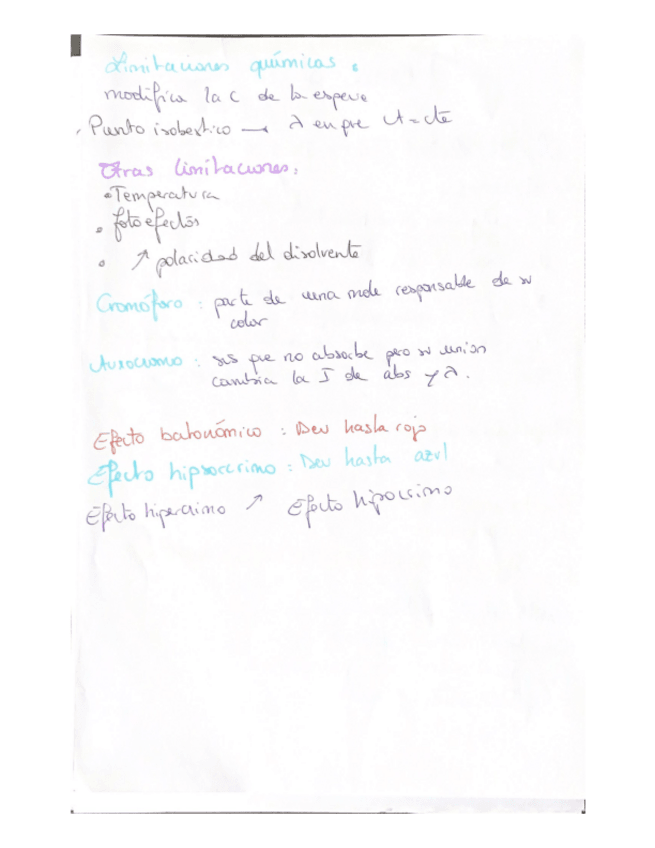 Limitaciones químicas:
modifica la c de la especie
· Punto isobestico → λ en que A = cte
Otras limitaciones:
• Temperatura
• fotoefectos
• ↗ polaridad del disolvente
Cromóforo : parte de una mole responsable de su
color
Auxocromo : sus que no absorbe pero su union
cambia la I de abs y λ.
Efecto batonómico : Desv hasta rojo
Efecto hipsocrimo : Desv hasta azul
Efecto hipercrimo ↗ Efecto hipocrimo